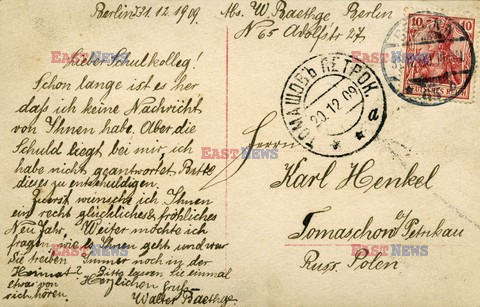 Berlin, 21.12.1909.
Abs. W. Baethge Berlin
N 65 Adolfstr 27
Lieber Schulkolleg!
Schon lange ist es her
daß ich keine Nachricht
von Ihnen habe. Aber die
Schuld liegt bei mir, ich
habe nicht geantwortet. Bitte
dieses zu entschuldigen.
Zuerst wünsche ich Ihnen
ein recht glückliches & fröhliches
Neu Jahr! Weiter möchte ich
fragen, wie es Ihnen geht und was
Sie treiben. Immer noch in der
Heimat? Bitte lassen Sie einmal
etwas von sich hören.
Herzlichen Gruß
Walter Baethge
Herrn
Karl Henkel
Tomaschow b/Petrikau
Russ. Polen
ТОМАШОВЪ ПЕТРОК.
20.12.09
а
10 10
DEUTSCHES REICH
BERLIN
EAST NEWS
EAST NEWS
EAST NEWS
EAST NEWS
EAST NEWS
EAST NEWS
EAST NEWS